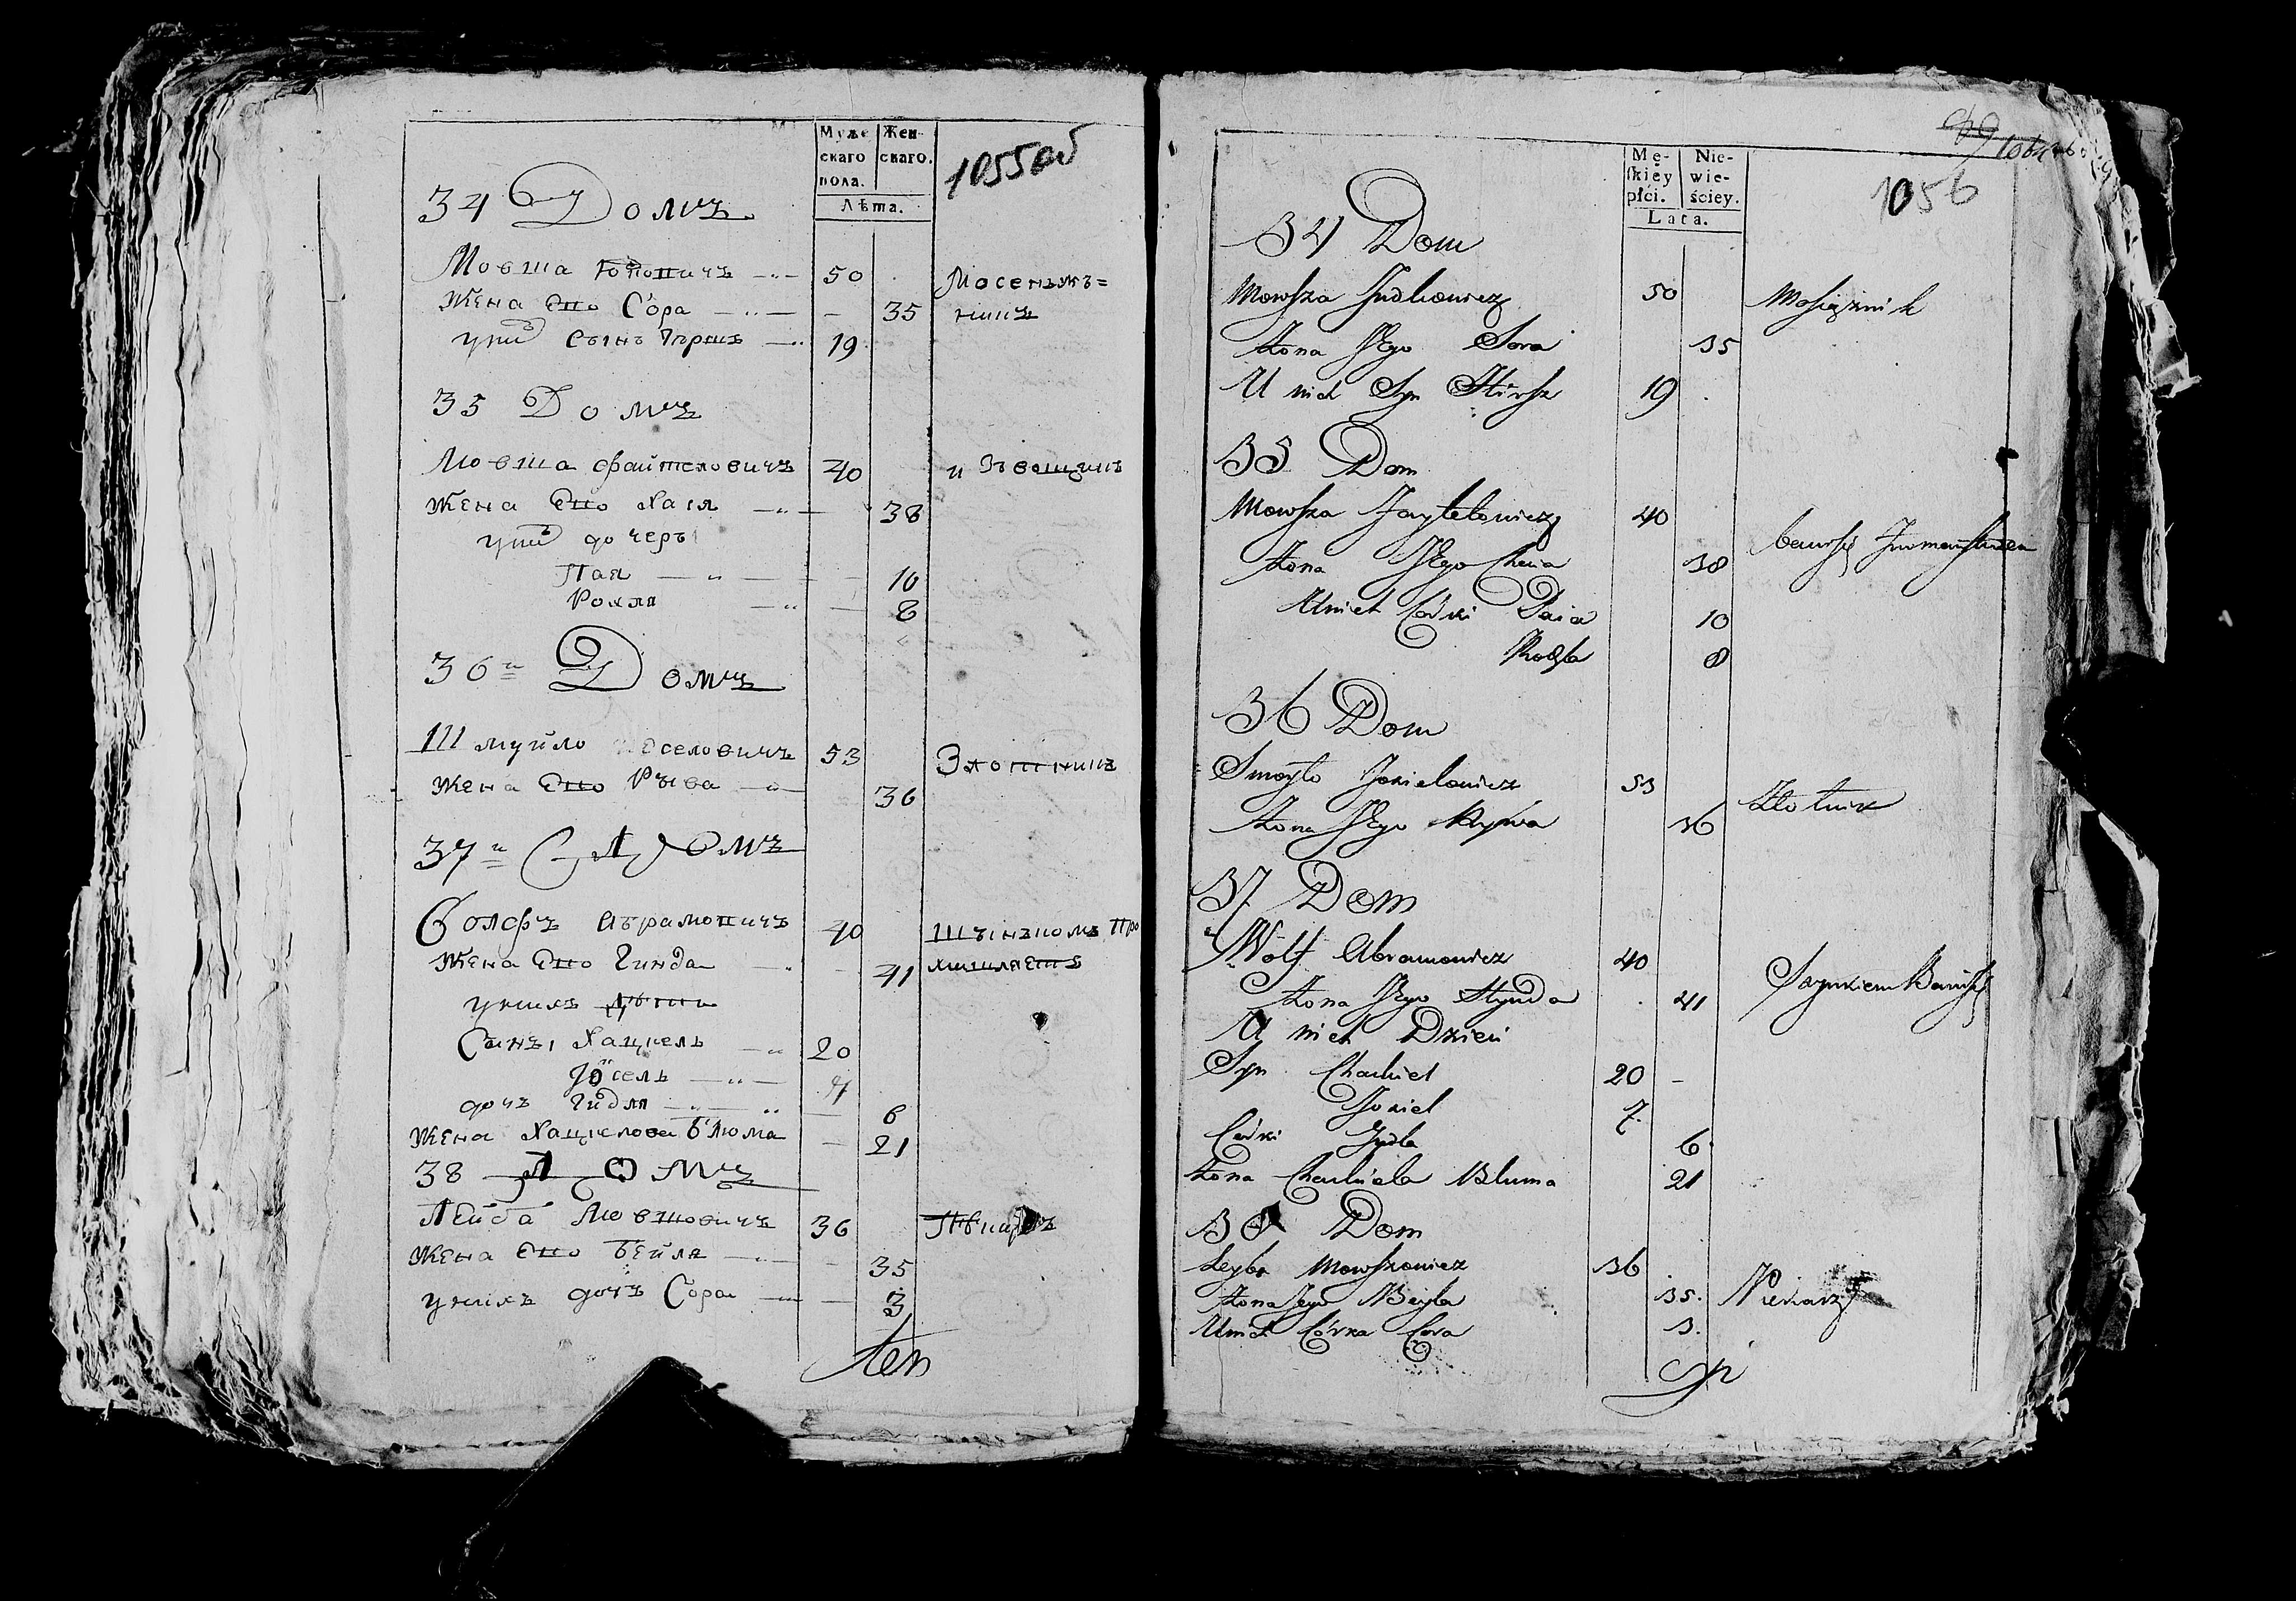 Муже
скаго
пола.
Жен
скаго.
Лѣта.
1055об
34 Домъ
Мовша Юдковичъ 50 Мосенжъ=
Жена Его Сора 35 никъ
у них Сынъ Гиршъ 19
35 Домъ
Мовша Файтеловичъ 40 и Звощикъ
Жена Его Хаія 38
у них дочеры
Пая 10
Рохля 8
36й Домъ
Шмуйло Іоселовичъ 53 Злотникъ
Жена Его Рыва 36
37й Домъ
Волфъ Абрамовичъ 40 Шынкомъ Про
Жена Его Гинда 41 мышляетъ
у нихъ Дѣти
Сыны Хацкель 20
Іосель 7
дочь Гидля 6
Жена Хацкелова Блюма 21
38 Домъ
Лейба Мовшовичъ 36 Пѣкаръ
Жена Его Бейля 35
у нихъ дочь Сора 3
Mę-
ſkiey
płci.
Nie-
wie-
ściey.
Lata.
1056
34 Dom
Mowsza Judkowicz 50 Mosiężnik
Żona Jego Sora 35
U nich Syn Hirsz 19
35 Dom
Mowsza Faytelowicz 40
Żona Jego Chaia 38 bawi się Furmaństwem
U nich Córki Paia 10
Rochla 8
36 Dom
Smoyło Joselowicz 53
Żona Jego Rywa 36 Złotnik
37 Dom
Wolf Abramowicz 40
Żona Jego Hynda 41 Szynkiem Bawi się
U nich Dzieci
Syn Chackiel 20
Josiel 7
Córki Gydla 6
Żona Chackiela Bluma 21
38 Dom
Leyba Mowszowicz 36
Żona Jego Beyla 35 Piekarz
U nich Córka Cora 3